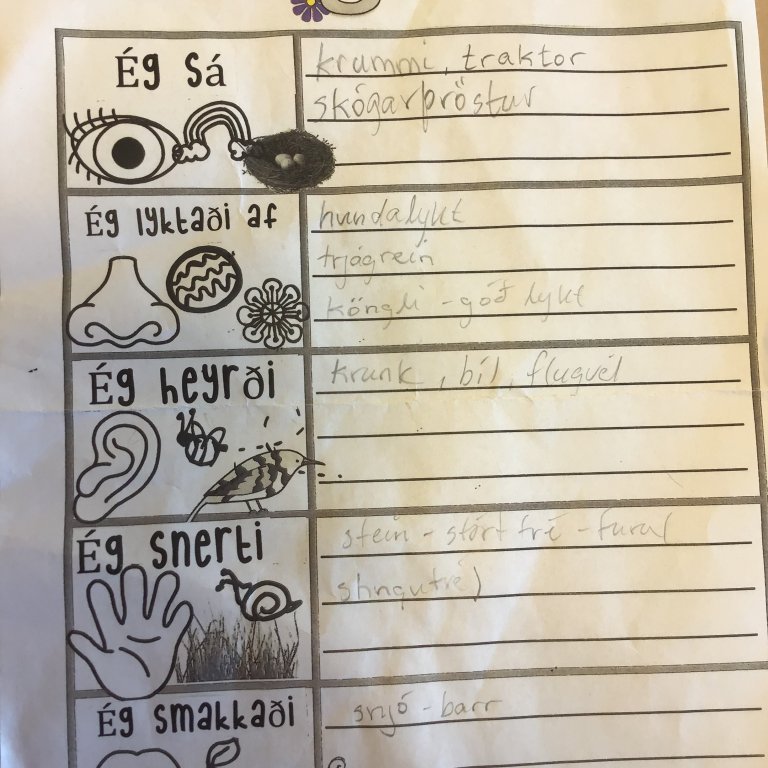 Ég sá
krummi, traktor
skógarþröstur
Ég lyktaði af
hundalykt
trjágrein
köngli - góð lykt
Ég heyrði
krunk, bíl, flugvél
Ég snerti
stein - stórt tré - fura
Ég smakkaði
snjó - barr